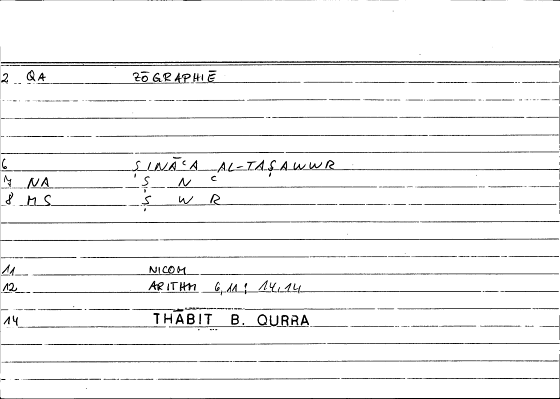 2 QA ZŌGRAPHIĒ
6 ṢINĀᶜA AL-TAṢAWWR
7 NA Ṣ N ᶜ
8 MS Ṣ W R
11 NICOM
12 ARITHM 6,11 ; 14,14
14 THĀBIT B. QURRA